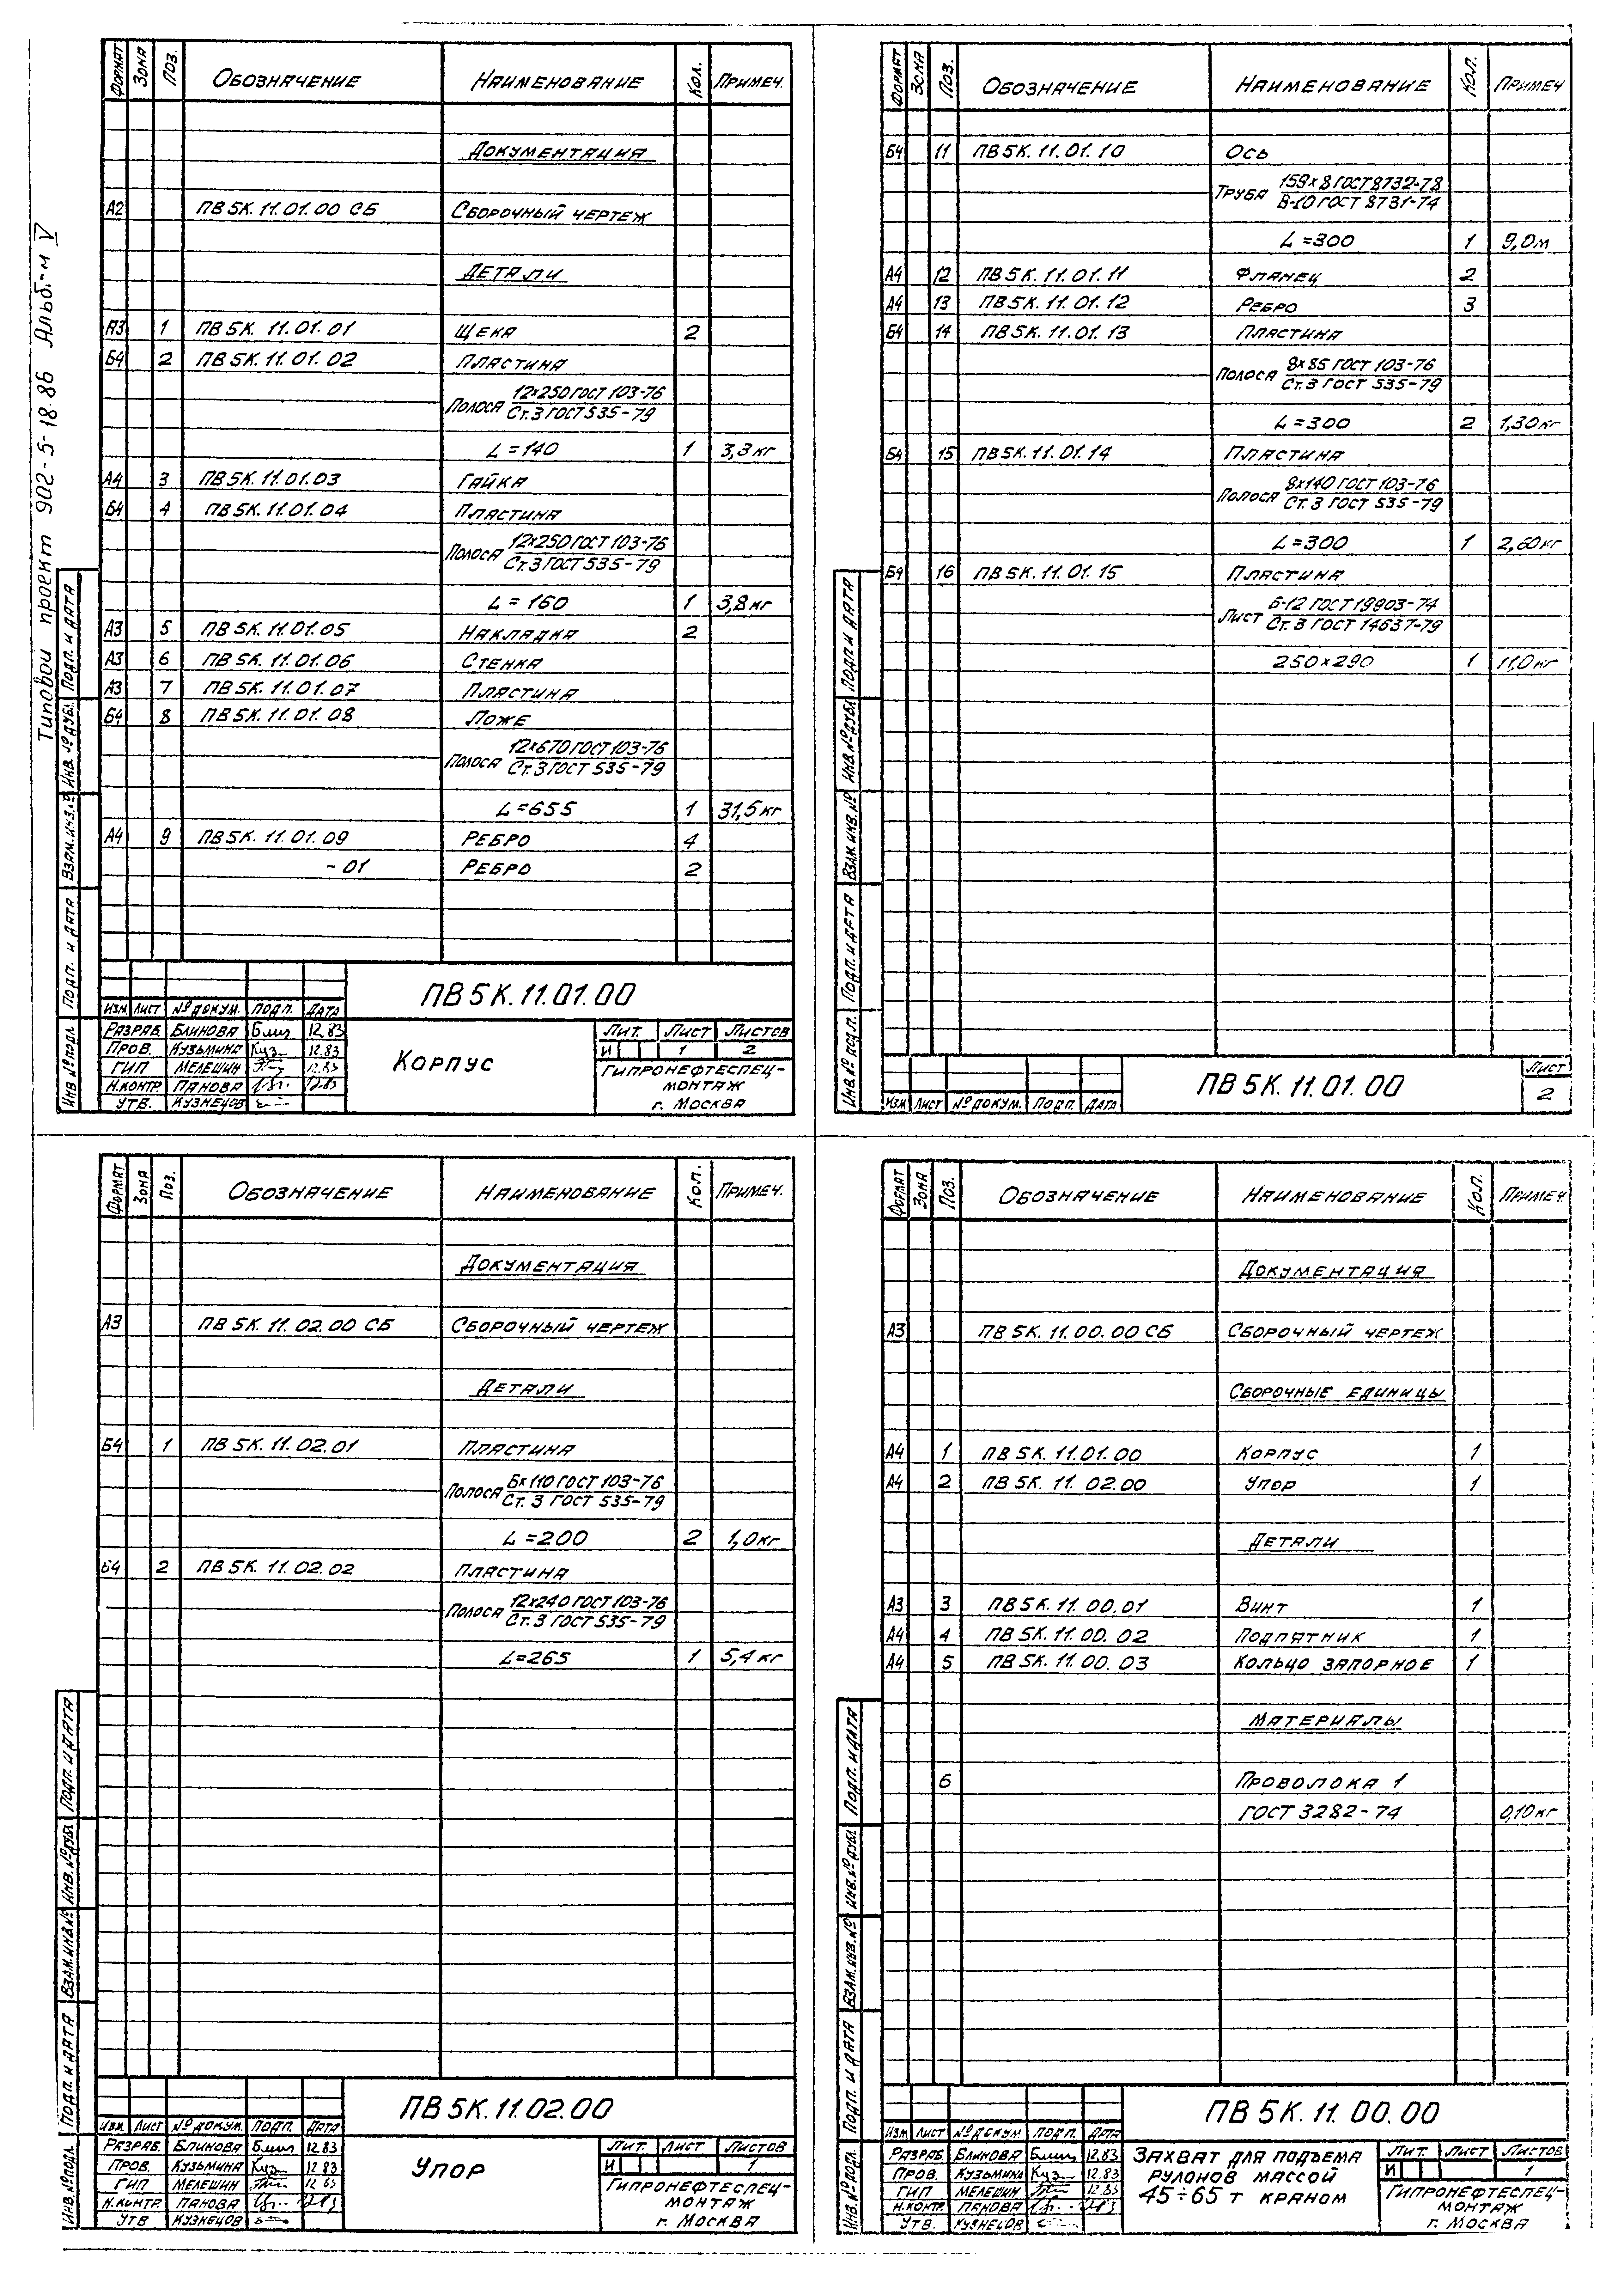 Типовой проект 902-5-18.86 Альбом V
Формат Зона Поз. Обозначение Наименование Кол. Примеч.
Документация
А2 ПВ5К.11.01.00 СБ Сборочный чертеж
Детали
А3 1 ПВ5К.11.01.01 Щека 2
Б4 2 ПВ5К.11.01.02 Пластина
Полоса 12х250 ГОСТ 103-76
Ст.3 ГОСТ 535-79
L=140 1 3,3кг
А4 3 ПВ5К.11.01.03 Гайка
Б4 4 ПВ5К.11.01.04 Пластина
Полоса 12х250 ГОСТ 103-76
Ст.3 ГОСТ 535-79
L=160 1 3,8кг
А3 5 ПВ5К.11.01.05 Накладка 2
А3 6 ПВ5К.11.01.06 Стенка
А3 7 ПВ5К.11.01.07 Пластина
Б4 8 ПВ5К.11.01.08 Ложе
Полоса 12х670 ГОСТ 103-76
Ст.3 ГОСТ 535-79
L=655 1 31,5кг
А4 9 ПВ5К.11.01.09 Ребро 4
-01 Ребро 2
Инв.№подл. Подп. и дата Взам.инв.№ Инв.№дубл. Подп. и дата
ПВ5К.11.01.00
Изм Лист №докум. Подп. Дата
Разраб. Блинова 12.83
Пров. Кузьмина 12.83
ГИП Мелешин 12.83
Н.контр. Панова 12.83
Утв. Кузнецов
Корпус
Лит. Лист Листов
И 1 2
Гипронефтеспец-
монтаж
г. Москва
Формат Зона Поз. Обозначение Наименование Кол. Примеч
Б4 11 ПВ5К.11.01.10 Ось
Труба 159х8 ГОСТ 8732-78
В-10 ГОСТ 8731-74
L=300 1 9,0м
А4 12 ПВ5К.11.01.11 Фланец 2
А4 13 ПВ5К.11.01.12 Ребро 3
Б4 14 ПВ5К.11.01.13 Пластина
Полоса 8х85 ГОСТ 103-76
Ст.3 ГОСТ 535-79
L=300 2 1,30кг
Б4 15 ПВ5К.11.01.14 Пластина
Полоса 8х140 ГОСТ 103-76
Ст.3 ГОСТ 535-79
L=300 1 2,60кг
Б4 16 ПВ5К.11.01.15 Пластина
Лист Б-12 ГОСТ 19903-74
Ст.3 ГОСТ 14637-79
250х290 1 11,0кг
Инв.№подл. Подп. и дата Взам.инв.№ Инв.№дубл Подп. и дата
Изм Лист №докум. Подп. Дата
ПВ5К.11.01.00
Лист
2
Формат Зона Поз. Обозначение Наименование Кол. Примеч.
Документация
А3 ПВ5К.11.02.00 СБ Сборочный чертеж
Детали
Б4 1 ПВ5К.11.02.01 Пластина
Полоса 6х110 ГОСТ 103-76
Ст.3 ГОСТ 535-79
L=200 2 1,0кг
Б4 2 ПВ5К.11.02.02 Пластина
Полоса 12х240 ГОСТ 103-76
Ст.3 ГОСТ 535-79
L=265 1 5,4кг
Инв.№подл. Подп. и дата Взам.инв.№ Инв.№дубл. Подп. и дата
ПВ5К.11.02.00
Изм. Лист №докум. Подп. Дата
Разраб. Блинова 12.83
Пров. Кузьмина 12.83
ГИП Мелешин 12.83
Н.контр. Панова 12.83
Утв Кузнецов
Упор
Лит. Лист Листов
И 1
Гипронефтеспец-
монтаж
г. Москва
Формат Зона Поз. Обозначение Наименование Кол. Примеч.
Документация
А3 ПВ5К.11.00.00 СБ Сборочный чертеж
Сборочные единицы
А4 1 ПВ5К.11.01.00 Корпус 1
А4 2 ПВ5К.11.02.00 Упор 1
Детали
А3 3 ПВ5К.11.00.01 Винт 1
А4 4 ПВ5К.11.00.02 Подпятник 1
А4 5 ПВ5К.11.00.03 Кольцо запорное 1
Материалы
6 Проволока 1
ГОСТ 3282-74 0,10кг
Инв.№подл. Подп. и дата Взам.инв.№ Инв.№дубл. Подп. и дата
ПВ5К.11.00.00
Изм Лист №докум. Подп. Дата
Разраб. Блинова 12.83
Пров. Кузьмина 12.83
ГИП Мелешин 12.83
Н.контр. Панова 12.83
Утв. Кузнецов
Захват для подъема
рулонов массой
45÷65 т краном
Лит. Лист Листов
И 1
Гипронефтеспец-
монтаж
г. Москва